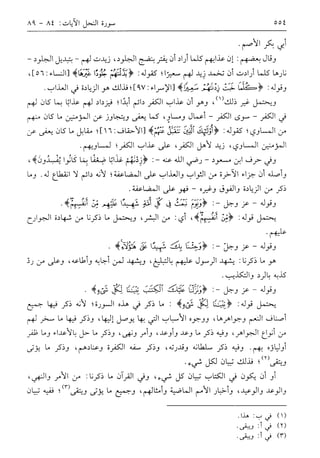 ٥٥٤ سورة النحل الآيات: ٨٤ - ٨٩
أبي بكر الأصم.
وقال بعضهم: إن عذابهم كلما أراد أن يفتر بنضج الجلود، زيدت لهم - بتبديل الجلود -
نارها كلما أرادت أن تخمد زيد لهم سعيرًا؛ كقوله: ﴿بَدَّلْنَٰهُمْ جُلُودًا غَيْرَهَا﴾ [النساء: ٥٦]،
وقوله: ﴿كُلَّمَا خَبَتْ زِدْنَٰهُمْ سَعِيرًا﴾ [الإسراء: ٩٧]؛ فذلك هو الزيادة في العذاب.
ويحتمل غير ذلك(١)، وهو أن عذاب الكفر دائم أبدًا؛ فيزداد لهم عذابًا بما كان لهم
في الكفر - سوى الكفر - أعمال ومساوٍ، كما يعفى ويتجاوز عن المؤمنين ما كان منهم
من المساوي؛ كقوله: ﴿أُوْلَٰٓئِكَ ٱلَّذِينَ نَتَقَبَّلُ عَنْهُمْ﴾ [الأحقاف: ١٦]؛ مقابل ما كان يعفى عن
المؤمنين المساوي، زيد لأهل الكفر، على عذاب الكفر؛ لمساويهم.
وفي حرف ابن مسعود - رضي الله عنه -: ﴿زِدْنَٰهُمْ عَذَابًا ضِعْفًا بِمَا كَانُوا يُفْسِدُونَ﴾،
وأصله أن جزاء الآخرة من الثواب والعذاب على المضاعفة؛ لأنه دائم لا انقطاع له. وما
ذكر من الزيادة والفوق وغيره - فهو على المضاعفة.
وقوله - عز وجل -: ﴿وَيَوْمَ نَبْعَثُ فِى كُلِّ أُمَّةٍ شَهِيدًا عَلَيْهِم مِّنْ أَنفُسِهِمْ﴾.
يحتمل قوله: ﴿مِّنْ أَنفُسِهِمْ﴾، أي: من البشر، ويحتمل ما ذكرنا من شهادة الجوارح
عليهم.
وقوله - عز وجلّ -: ﴿وَجِئْنَا بِكَ شَهِيدًا عَلَىٰ هَٰٓؤُلَآءِ﴾.
هو ما ذكرنا: يشهد الرسول عليهم بالتبليغ، ويشهد لمن أجابه وأطاعه، وعلى من ردّ
كذبه بالرد والتكذيب.
وقوله - عز وجل -: ﴿وَنَزَّلْنَا عَلَيْكَ ٱلْكِتَٰبَ تِبْيَٰنًا لِّكُلِّ شَىْءٍ﴾.
يحتمل قوله: ﴿تِبْيَٰنًا لِّكُلِّ شَىْءٍ﴾: ما ذكر في هذه السورة؛ لأنه ذكر فيها جميع
أصناف النعم وجواهرها، ووجوه الأسباب التي بها يوصل إليها، وذكر فيها ما سخر لهم
من أنواع الجواهر، وفيه ذكر ما وعد وأوعد، وأمر ونهى، وذكر ما حل بالأعداء وما ظفر
أولياؤه بهم. وفيه ذكر سلطانه وقدرته، وذكر سفه الكفرة وعنادهم، وذكر ما يؤتى
ويتقى(٢)؛ فذلك تبيان لكل شيء.
أو أن يكون في الكتاب تبيان كل شيء، وفي القرآن ما ذكرنا: من الأمر والنهي،
والوعد والوعيد، وأخبار الأمم الماضية وأمثالهم، وجميع ما يؤتى ويتقى(٣)؛ ففيه تبيان
(١) في ب: هذا.
(٢) في أ: ويبقى.
(٣) في أ: ويبقى.